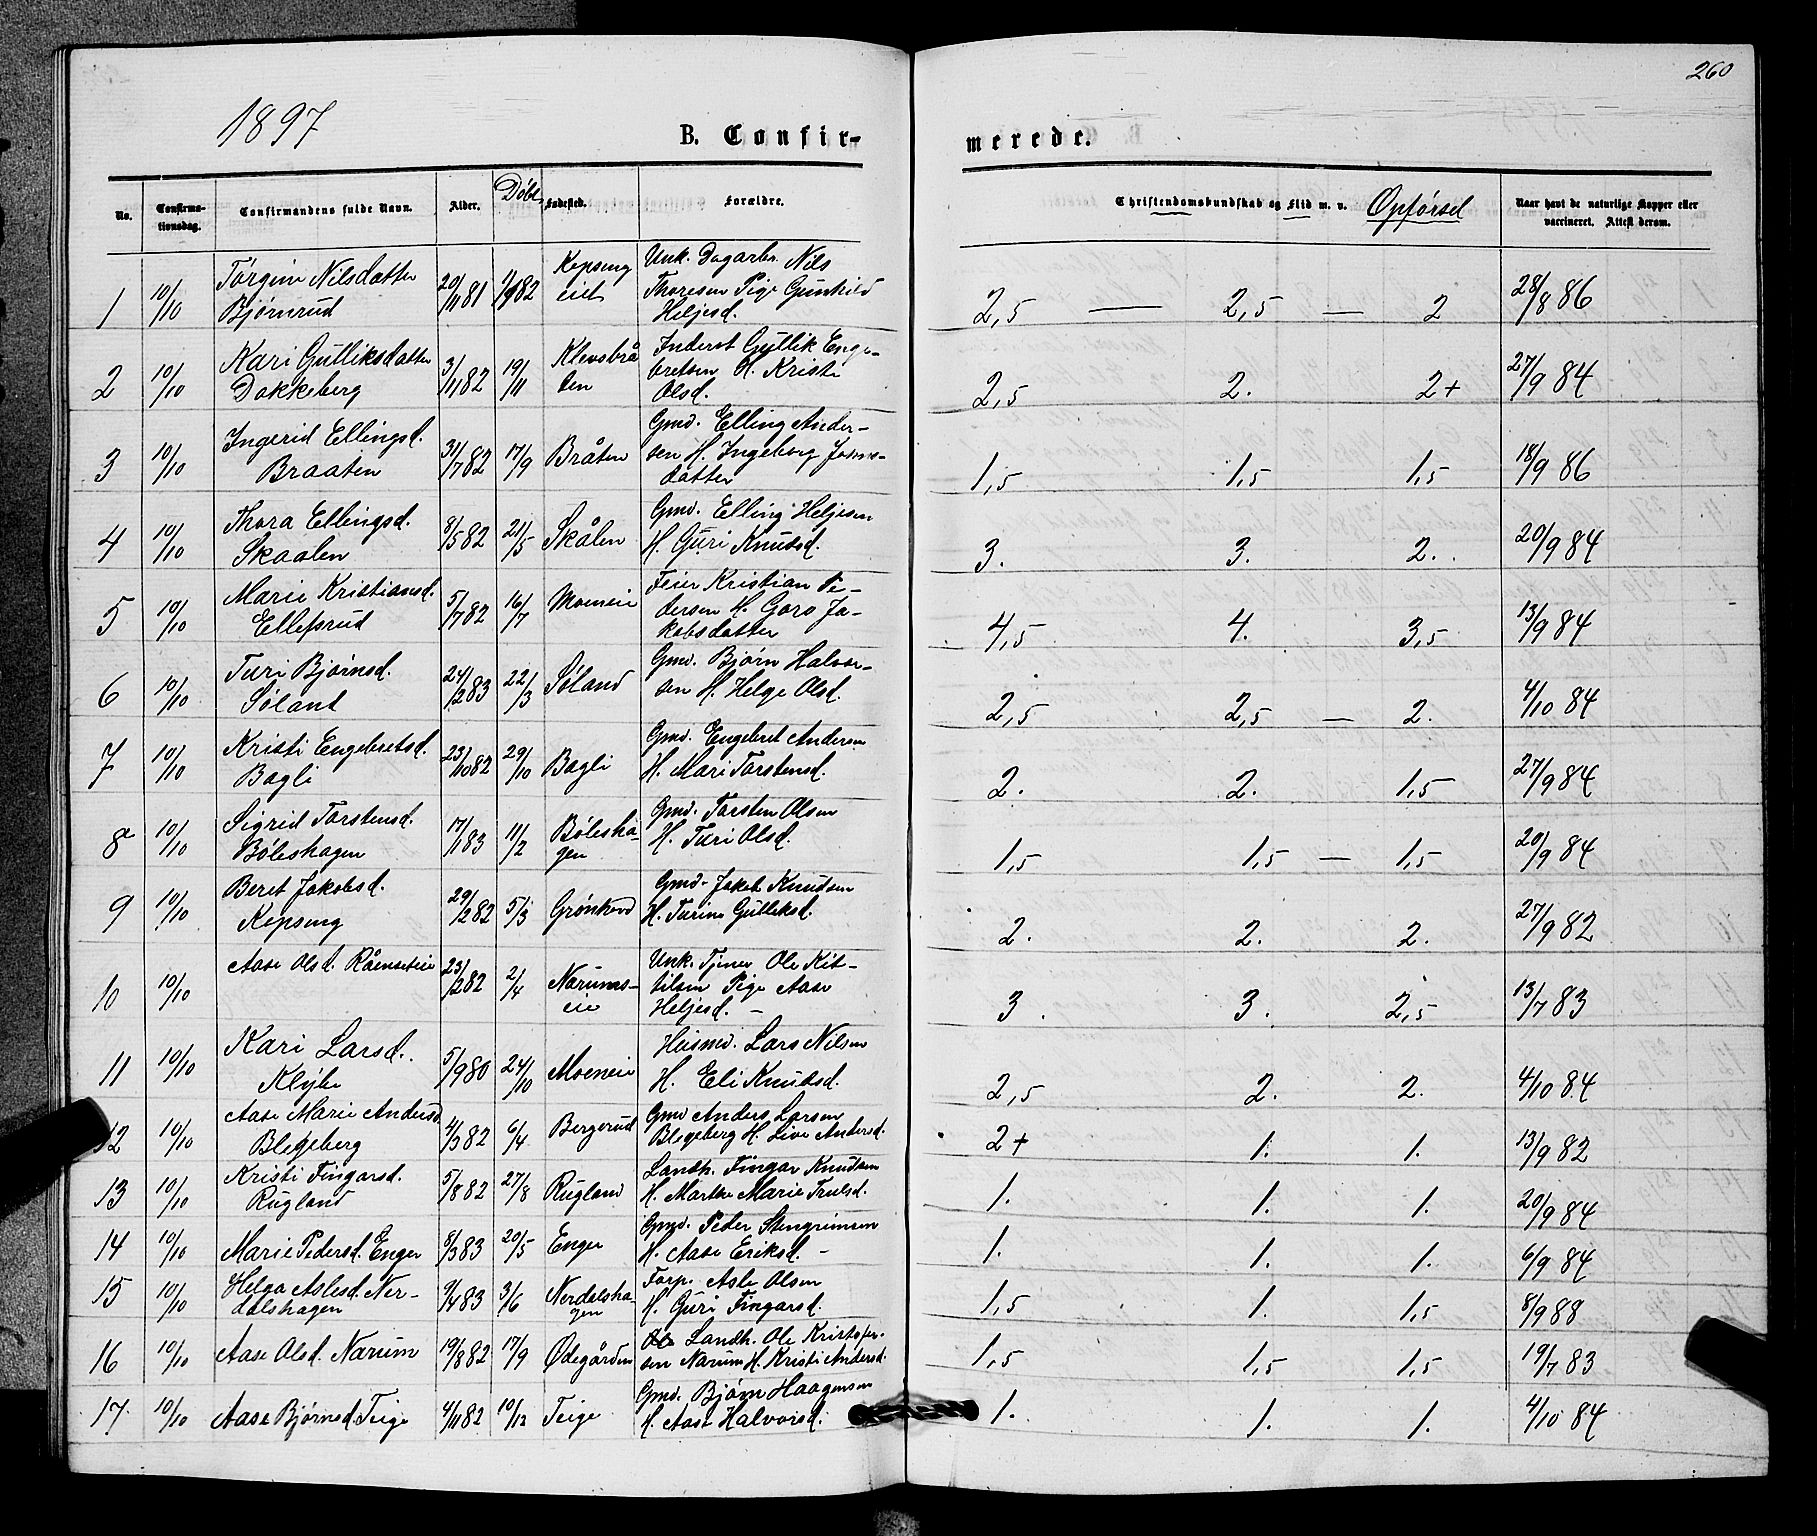 260
1897
B. Confir-
merede.
No.
Confirma-
tionsdag.
Confirmandens fulde Navn.
Alder.
Døbt
Fødested.
Forældre.
Christendomskundskab og Flid m. v. Opførsel
Naar havt de naturlige Kopper eller
vaccineret. Attest derom.
1 10/10 Torgine Nilsdatter Bjørnrud 20/11 81 82 Kopseng eiet Unk. Dagarbr. Nils
Thoresen Pige Gunhild
Heljesd.
2,5 — 2,5 — 2 28/8 86
2 10/10 Kari Gulliksdatter Dokkeberg 3/11 82 19/11 Klevsbrå ten Inderst Gullik Enge-
bretsen H. Kristi
Olsd.
2,5 2. 2+ 27/9 84
3 10/10 Ingerid Ellingsd. Braaten 31/7 82 17/9 Bråten Gmd. Elling Ander-
sen H. Ingeborg
datter
1,5 1,5 1,5 18/9 86
4 10/10 Thora Ellingsd. Skaalen 8/5 82 21/5 Skålen Gmd. Elling Heljesen
H. Guri Knudsd.
3. 3. 2. 20/9 84
5 10/10 Marie Kristiansd. Ellefsrud 5/7 82 16/7 Moeneie Feier Kristian Pe-
dersen H. Goro Ja-
kobsdatter
4,5 4. 3,5 13/9 84
6 10/10 Turi Bjørnsd. Søland 24/2 83 22/3 Søland Gmd. Bjørn Halvor-
sen H. Helge Olsd.
2,5 2,5 — 2. 4/10 84
7 10/10 Kristi Engebretsd. Bagli 23/10 82 29/10 Bagli Gmd. Engebret Andersen
H. Mari Torstensd.
2. 2. 1,5 27/9 84
8 10/10 Sigrid Torstensd. Bøleshagen 17/1 83 11/2 Bølesha- gen Gmd. Torsten Olsen
H. Turi Olsd.
1,5 1,5 — 1,5 20/9 84
9 10/10 Beret Jakobsd. Kopseng 29/2 82 5/3 Gmd. Jakob Knudsen
H. Turine Gulliksd.
2. 2. 2. 27/9 82
10 10/10 Aase Olsd. 23/2 82 2/4 Narums- eie Unk. Tjener Ole Kit-
tilsen Pige Aase
Heljesd. –
3. 3. 2,5 13/7 83
11 10/10 Kari Larsd. Klybe 5/9 80 24/10 Moeneie Husmd. Lars Nilsen
H. Eli Knudsd.
2,5 2. 2. 4/10 84
12 10/10 Aase Marie Andersd. Blegeberg 4/3 82 6/4 Bergerud Gmd Anders Larsen
Blegeberg H. Live Andersd.
2+ 1. 1. 13/9 82
13 10/10 Kristi Fingarsd. Rugland 5/8 82 27/8 Rugland Landh. Fingar Knudsen
H. Marthe Marie Trulsd.
1. 1. 1. 20/9 84
14 10/10 Marie Pedersd. Enger 8/3 83 20/5 Enger Gmd. Peder Stengrimsen
H. Aase Eriksd. –
1. 1. 1. 6/9 84
15 10/10 Helga Aslesd. Ner-
dalshagen 9/4 83 3/6 Nerdalsha- gen Torp. Asle Olsen
H. Guri Fingarsd.
1,5 1. 1,5 8/9 88
16 10/10 Aase Olsd. Narum 19/8 82 17/9 Ødegården Landh. Ole Kristofer-
sen Narum H. Kristi Andersd.
1,5 1,5 1,5 19/7 83
17. 10/10 Aase Bjørnsd. Teige 4/11 82 10/12 Teige Gmd. Bjørn Haagensen
H. Aase Halvorsd.
1. 1. 1. 4/10 84